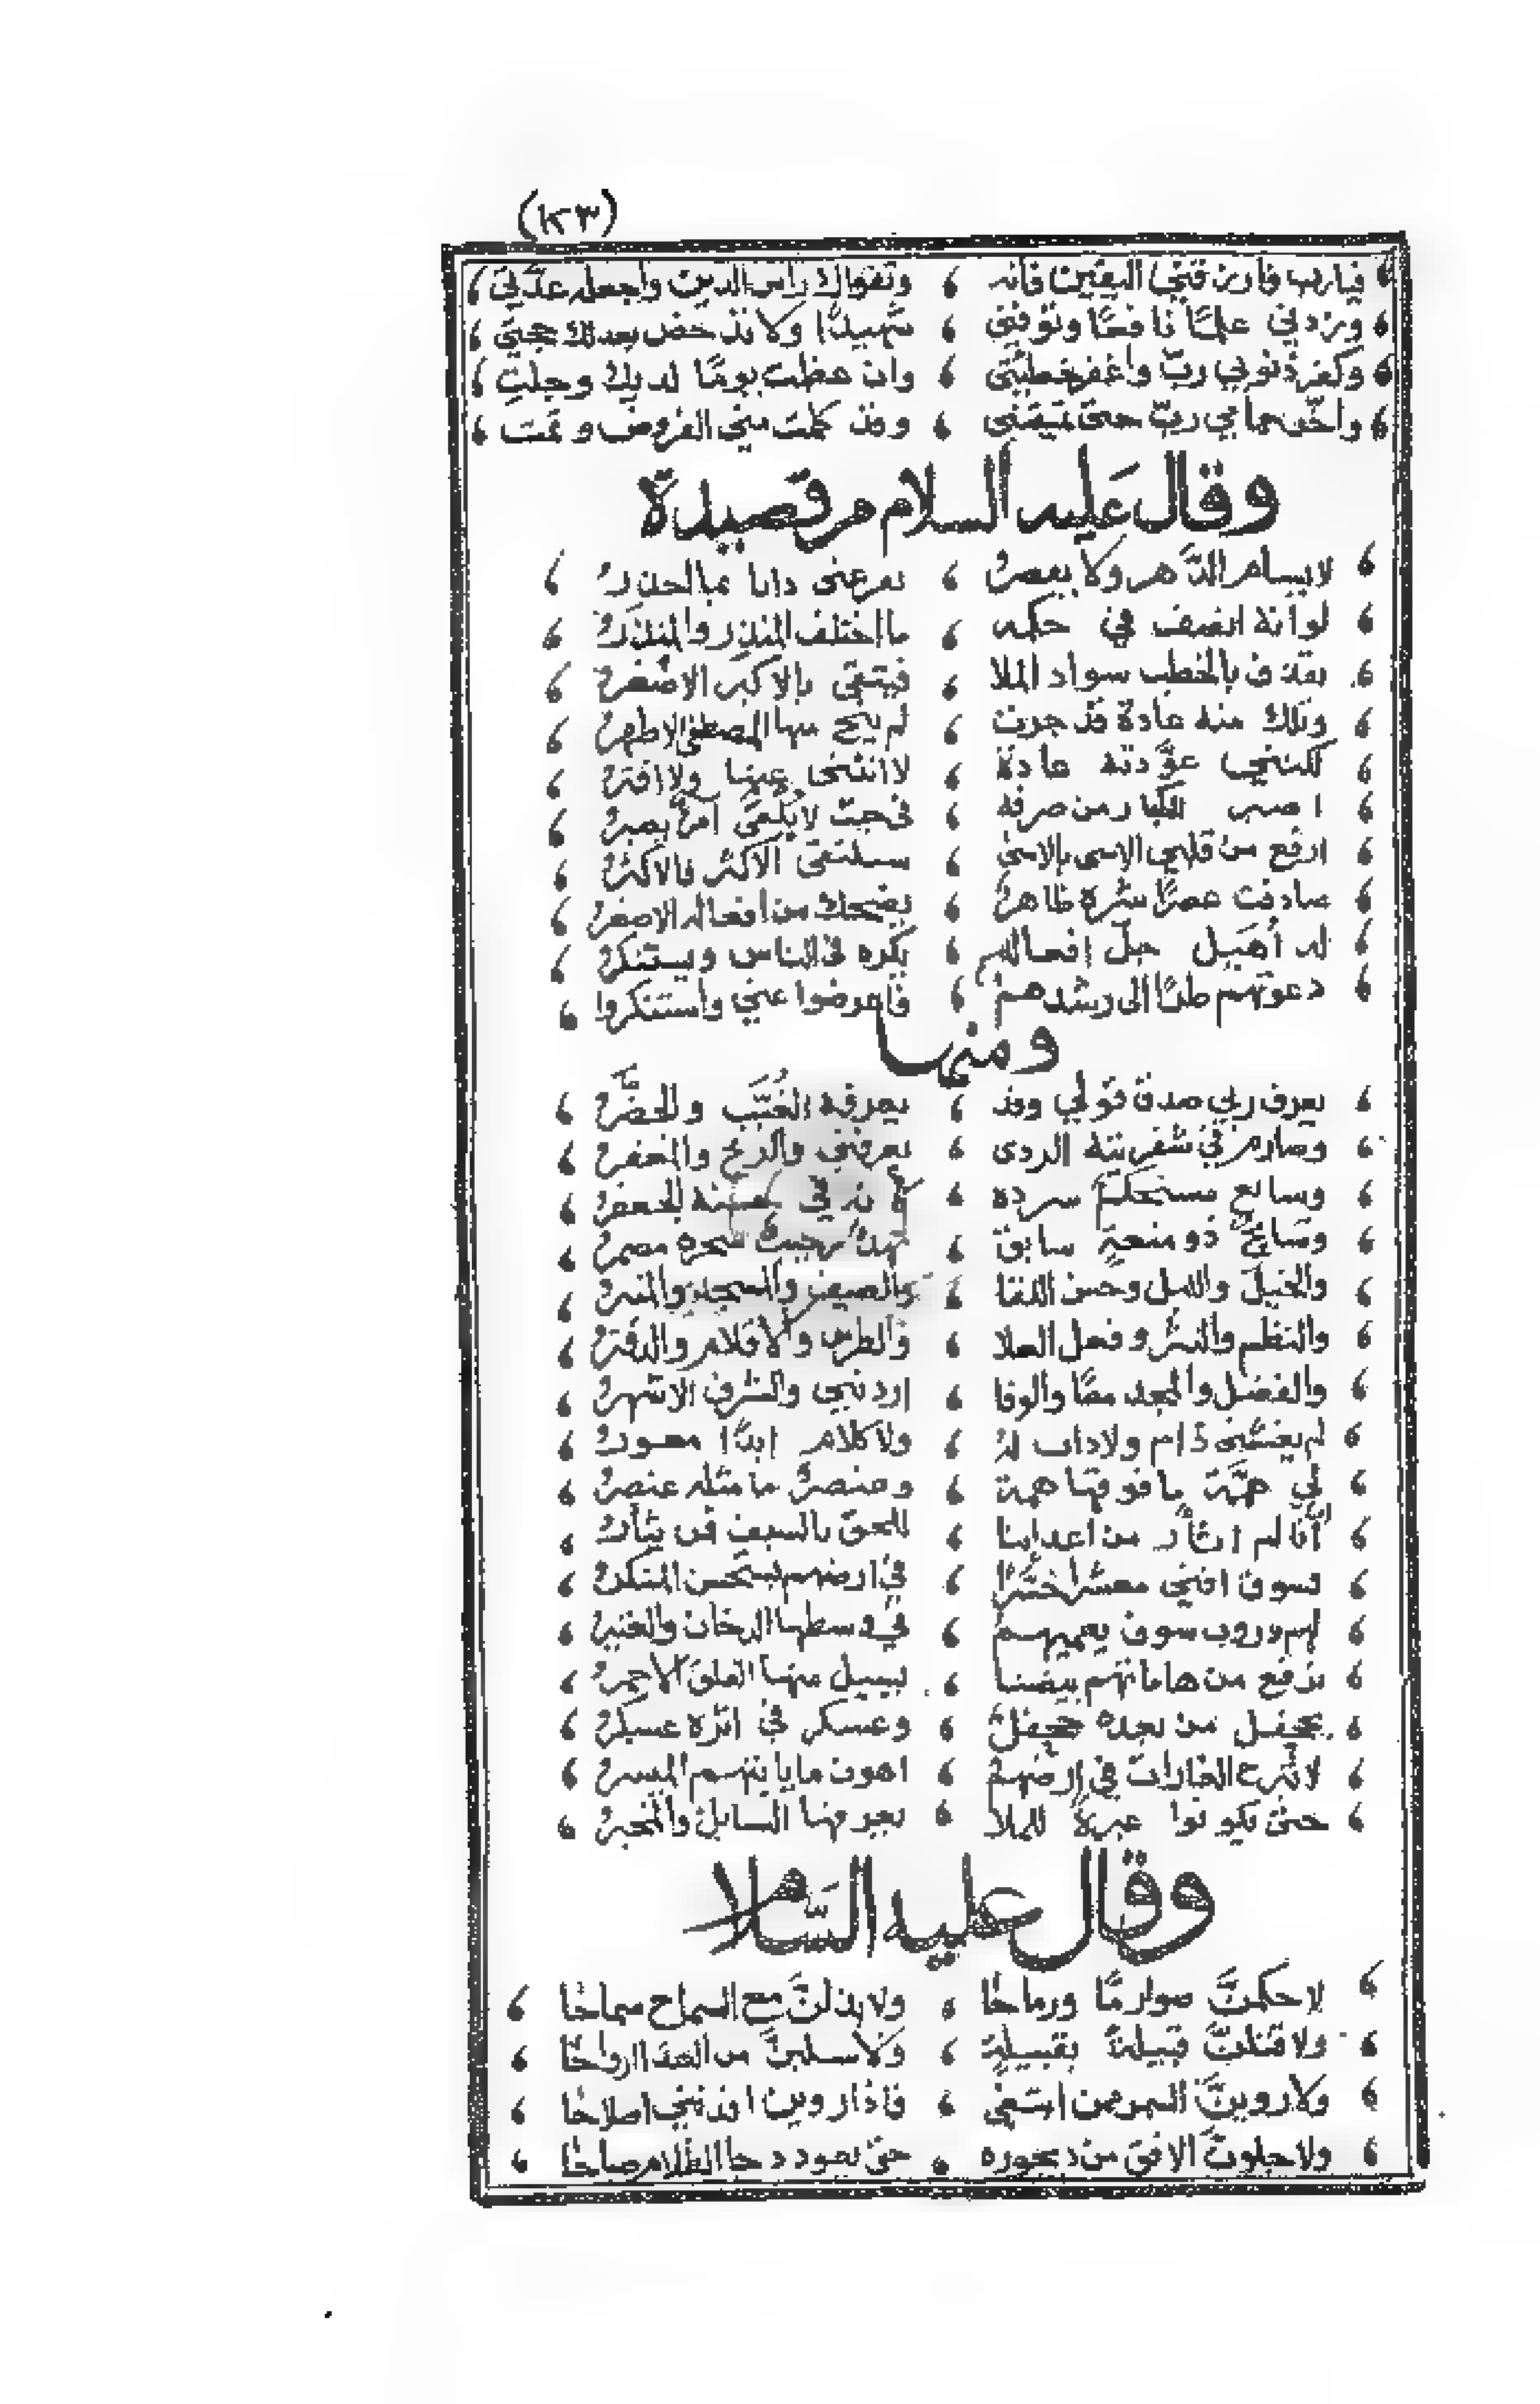 (١٢٣)
فيارب فارزقني اليقين فانه ، وتقواك راس الدين واجعله عدتي
وزدني علمًا نافعًا وتوفني ، شهيدًا ولا تدحض بعدلك حجتي
وكفر ذنوبي ربّ واغفر خطيئتي ، وان عظمت يومًا لديك وجلت
واختم حمامي ربّ حتى تميتني ، وقد كملت مني الفروض وتمت
وقال عليه السلام من قصيدة
لا يسام الدَّهر ولا يعصرُ ، يعرضني دابا بما احذرُ
لوانه انصف في حكمه ، ما اختلف المنذر والمنذرُ
يقذف بالخطب سواد الملا ، فيتقى بالاكبر الاصغرُ
وتلك منه عادة قد جرت ، لم ينج منها المصطفى الاطهرُ
لكنني عوَّدته عادة ، لا انثنى عنها ولا افترُ
اصبر من صرفه ، في حيث لا يُلقى امرؤ يصبرُ
ارفع من قلبي الاسى بالاسى ، سيلتقى الاكثر فالاكثرُ
صادفت عصرًا شره ظاهرُ ، يضحك من افعاله الاصغرُ
له أُهَيل جلّ افعالهم ، يكره في الناس ويستنكرُ
دعوتهم طرًا الى رشدهم ، فاعرضوا عني واستنكروا
ومنها
يعرف ربي صدق قولي وقد ، يعرفه الغُيَّب والحضَّرُ
وصارم في شفرتيه الردى ، يعرفني والدرع والمغفرُ
وسابغ مستحكم سرده ،
وسابحٌ ذو منعةٍ سابق ،
والخيل والليل وحسن اللقا ، والضيف والمسجد والمنبرُ
والنظم والنثر وفعل العلا ، والطرس والاقلام والدفترُ
والفضل والمجد معًا والوفا ، اردنني والشرف الاشهرُ
لم يغشني ذام ولا داب له ، ولا كلام ابدًا معورُ
لي همَّة ما فوقها همة ، وعنصرُ ما مثله عنصرُ
أنا لم اثأر من اعداينا ، للحق بالسيف فمن يثأرُ
فسوف افني معشرا خسَّرًا ، في ارضهم يستحسن المنكرُ
لهم دروب سوف يعميهم ، في وسطها الدخان والعثيرُ
نرفع من هاماتهم بيضنا ، يسيل منها العلق الاحمرُ
بجحفل من بعده جحفلُ ، وعسكر في اثره عسكرُ
لاشرع الغارات في ارضهم ، اهون ما ياتيهم الميسرُ
حتى يكونوا عبرةً للملا ، يعرفها السايل والمخبرُ
وقال عليه السَّلام
لاحكمنَّ صوارمًا ورماحًا ، ولابذلنَّ مع السماح سماحًا
ولاقتلنَّ قبيلةً بقبيلةٍ ، ولاسلبنَّ من العدا ارواحًا
ولاروينَّ السمر من ، فاذا روين افدنني اصلاحًا
ولاجلونَّ الافق من ديجوره ، حتى يعود دجا الظلام صباحًا